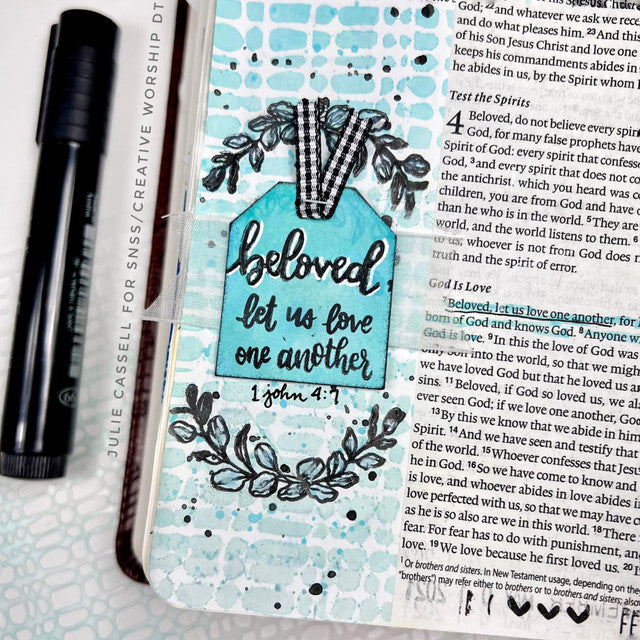 JULIE CASSELL FOR SNSS/CREATIVE WORSHIP DT
beloved,
let us love
one another
1 john 4:7
God; 22 and whatever we ask we rece
and do what pleases him. 23 And this
of his Son Jesus Christ and love one
keeps his commandments abides in
he abides in us, by the Spirit whom
Test the Spirits
4 Beloved, do not believe every spiri
God, for many false prophets have
Spirit of God: every spirit that confess
God, 3 and every spirit that does not co
the antichrist, which you heard was c
children, you are from God and have
than he who is in the world. 5 They are
world, and the world listens to them. 6
to us; whoever is not from God does n
truth and the spirit of error.
God Is Love
7 Beloved, let us love one another, for
born of God and knows God. 8 Anyone w
God is love. 9 In this the love of God was
only Son into the world, so that we migh
we have loved God but that he loved us a
sins. 11 Beloved, if God so loved us, we al
ever seen God; if we love one another, God
13 By this we know that we abide in him
Spirit. 14 And we have seen and testify that
of the world. 15 Whoever confesses that Jesu
he in God. 16 So we have come to know and
is love, and whoever abides in love abides i
love perfected with us, so that we may have c
as he is so also are we in this world. 18 There
fear. For fear has to do with punishment, an
love. 19 We love because he first loved us. 20 I
1 Or brothers and sisters. In New Testament usage, depending on the
"brothers") may refer either to brothers or to brothers and sisters; also